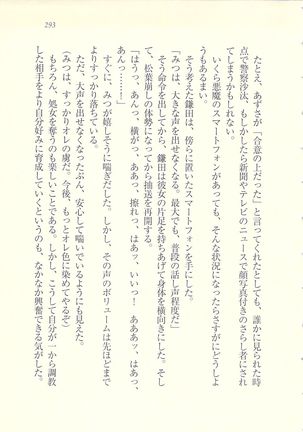 293
たとえ、あずさが「合意の上だった」と言ってくれたとしても、誰かに見られた時
点で警察沙汰、もしかしたら新聞やテレビのニュースで顔写真付きのさらし者にされ
てしまうかもしれない。
いくら悪魔のスマートフォンがあっても、そんな状況になったらさすがにどうしよ
うもあるまい。
そう考えた鎌田は、傍らに置いたスマートフォンを手にした。
「みつは、大きな声を出せなくなる。最大でも、普段の話し声程度だ」
そう命令を出してから、鎌田は彼女の片足を持ちあげて身体を横向きにした。そし
て、松葉崩しの体勢になってから抽送を再開する。
「はうっ、あんっ、横がっ、ああっ、擦れっ、はあッ、いいっ! あああッ、はあっ、
あんっ……」
すぐに、みつが嬉しそうに喘ぎだした。しかし、その声のボリュームは先ほどまで
よりすっかり落ちている。
ただ、大声を出せなくなったぶん、安心して喘いでいるようにも見えた。
(みつは、すっかりオレの虜だ。今後、もっとオレ色に染めてやるぞ)
もちろん、処女を奪うのも楽しいことである。しかし、こうして自分が一から調教
した相手をより自分好みに育成していくというのも、なかなか興奮できる気がした。